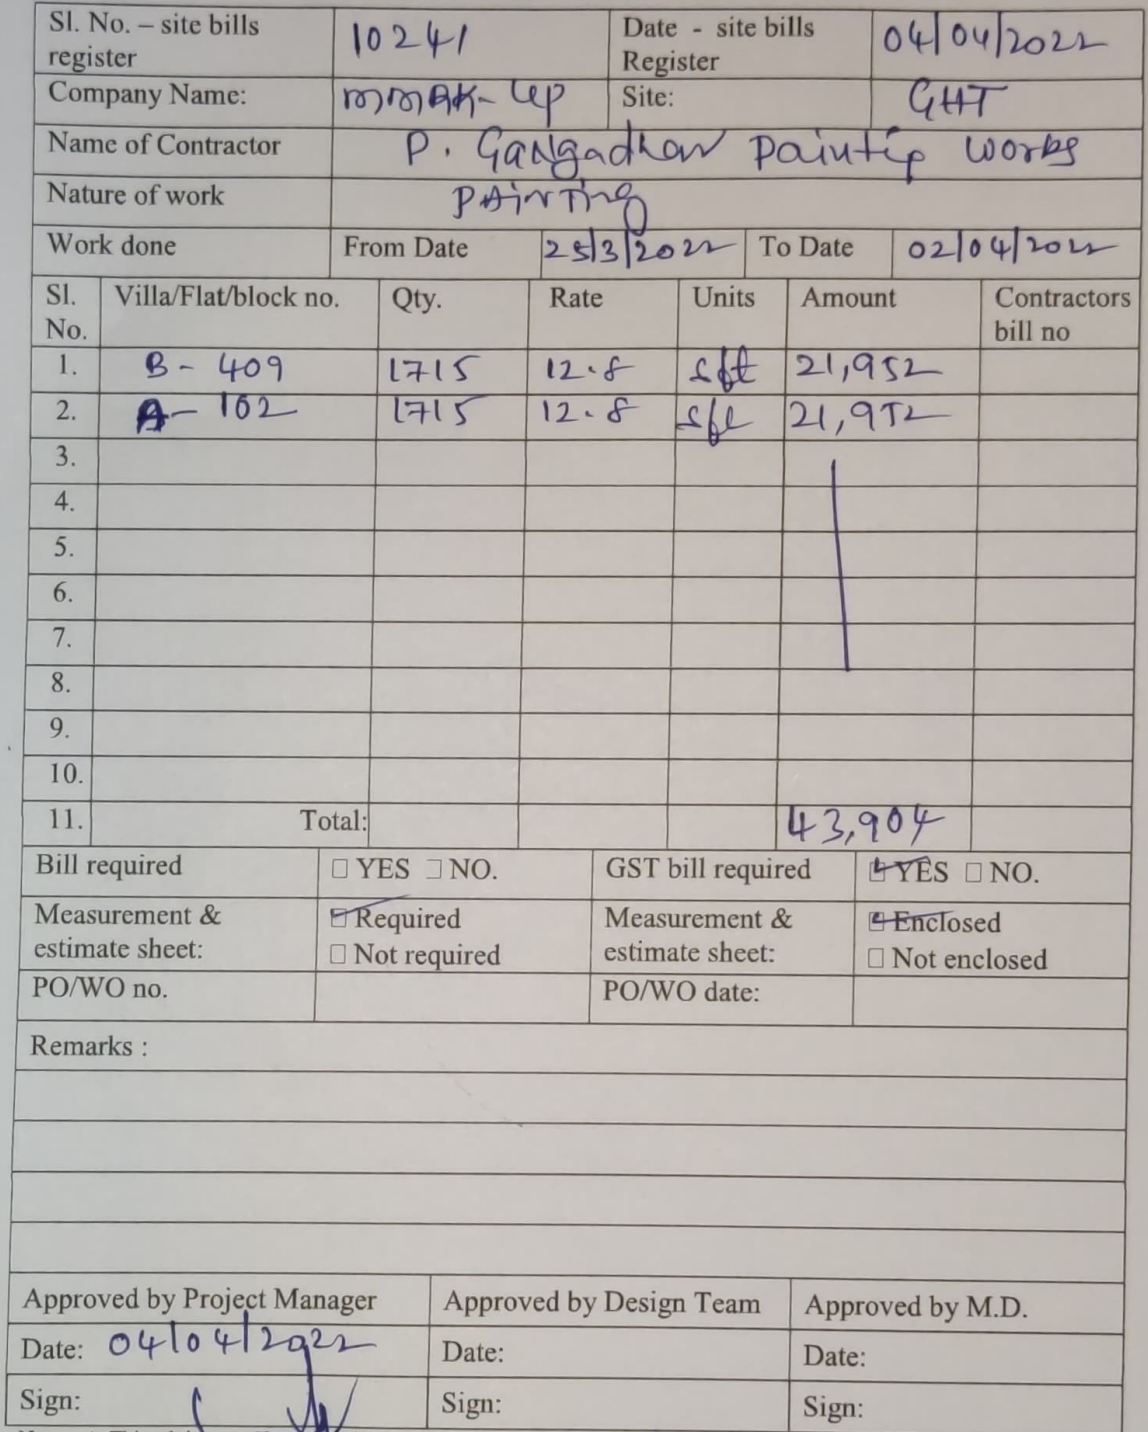 Sl. No. – site bills register 10241 Date - site bills Register 04/04/2022
Company Name: Site: GHT
Name of Contractor P. Gangadhar Painting Works
Nature of work Painting
Work done From Date 25/3/2022 To Date 02/04/2022
Sl. No. Villa/Flat/block no. Qty. Rate Units Amount Contractors bill no
1. B - 409 1715 12.8 sft 21,952
2. A - 102 1715 12.8 sft 21,952
3.
4.
5.
6.
7.
8.
9.
10.
11. Total: 43,904
Bill required □ YES □ NO. GST bill required □ YES □ NO.
Measurement & estimate sheet: □ Required □ Not required Measurement & estimate sheet: □ Enclosed □ Not enclosed
PO/WO no. PO/WO date:
Remarks :
Approved by Project Manager Approved by Design Team Approved by M.D.
Date: 04/04/2022 Date: Date:
Sign: Sign: Sign: